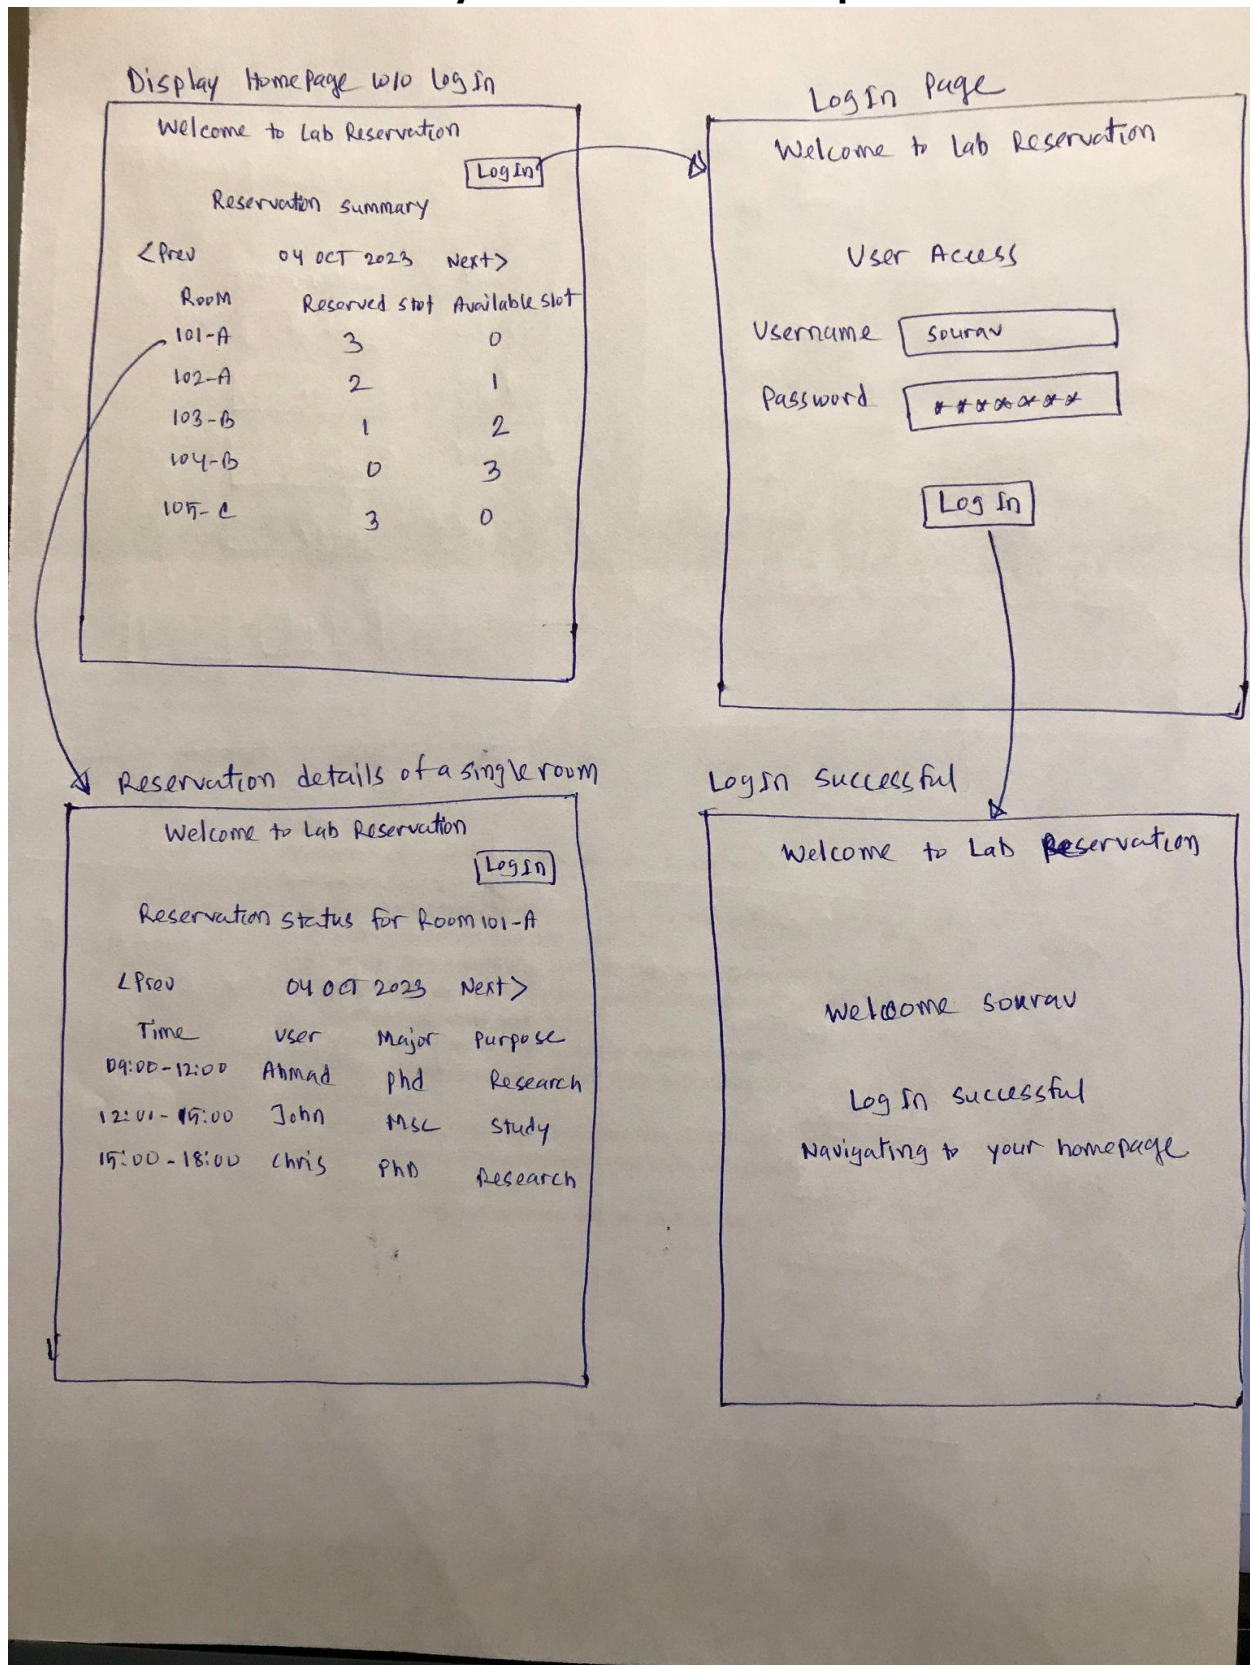 Display HomePage w/o Log In
Welcome to Lab Reservation
Log In
Reservation summary
<Prev 04 OCT 2023 Next>
Room Reserved slot Available slot
101-A 3 0
102-A 2 1
103-B 1 2
104-B 0 3
105-C 3 0
Log In Page
Welcome to Lab Reservation
User Access
Username sourav
Password *******
Log In
Reservation details of a single room
Welcome to Lab Reservation
Log In
Reservation status for Room 101-A
<Prev 04 OCT 2023 Next>
Time User Major Purpose
09:00-12:00 Ahmad Phd Research
12:01-15:00 John Msc Study
15:00-18:00 Chris PhD Research
Log In Successful
Welcome to Lab Reservation
Welcome sourav
Log In Successful
Navigating to your homepage